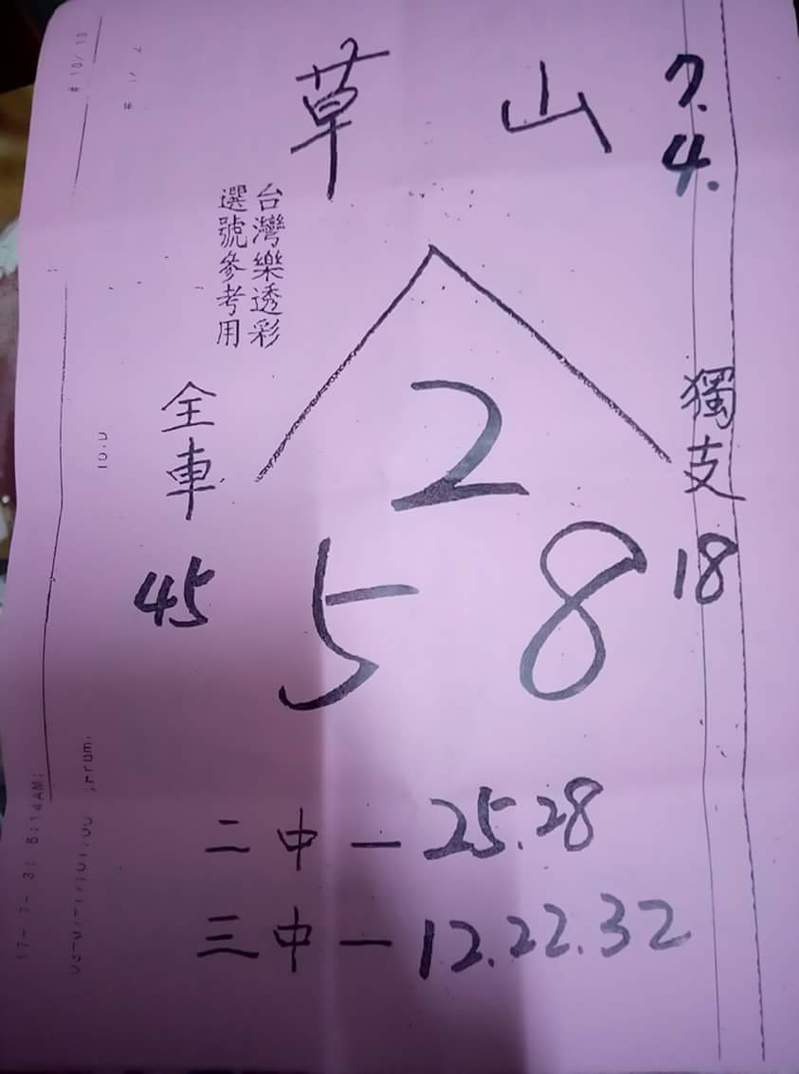 草山
7.4.
台灣樂透彩
選號參考用
全車
45
獨支
18
2
5 8
二中－25.28
三中－12.22.32